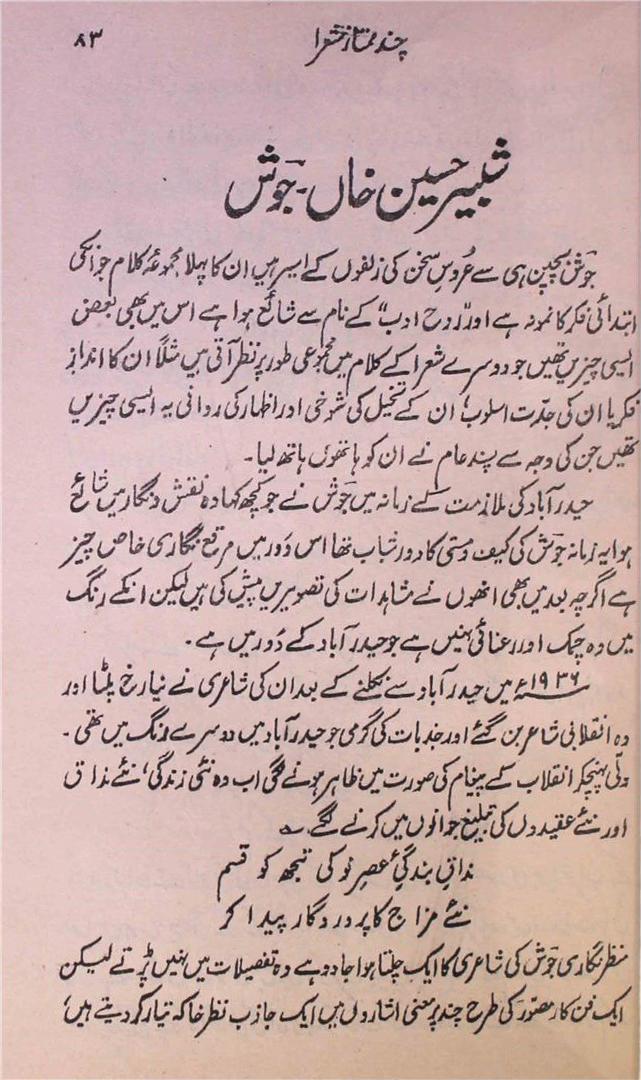 چند ممتاز شعرا ۸۳
شبیر حسین خاں۔ جوش
جوش بچپن ہی سے عروسِ سخن کی زلفوں کے اسیر ہیں ان کا پہلا مجموعۂ کلام جو انکی
ابتدائی فکر کا نمونہ ہے اور "روح ادب" کے نام سے شائع ہوا ہے اس میں بھی بعض
ایسی چیزیں تھیں جو دوسرے شعرا کے کلام میں مجموعی طور پر نظر آتی ہیں مثلاً ان کا اندازِ
فکر یا ان کی جدّت اسلوب' ان کے تخیل کی شوخی اور اظہار کی روانی یہ ایسی چیزیں
تھیں جن کی وجہ سے پسند عام نے ان کو ہاتھوں ہاتھ لیا۔
حیدرآباد کی ملازمت کے زمانہ میں جوش نے جو کچھ کہا وہ نقش ونگار میں شائع
ہوا یہ زمانہ جوش کی کیف ومستی کا دور شباب تھا اس دور میں مرقع نگاری خاص چیز
ہے اگرچہ بعد میں بھی انھوں نے مشاہدات کی تصویریں پیش کی ہیں لیکن انکے رنگ
میں وہ چمک اور رعنائی نہیں ہے جو حیدرآباد کے دَور میں ہے۔
۱۹۳۶ء میں حیدرآباد سے نکلنے کے بعد ان کی شاعری نے نیا رخ پلٹا اور
وہ انقلابی شاعر بن گئے اور جذبات کی گرمی جو حیدرآباد میں دوسرے رنگ میں تھی۔
دلّی پہنچکر انقلاب کے پیغام کی صورت میں ظاہر ہونے لگی اب وہ نئی زندگی' نئے مذاق
اور نئے عقیدوں کی تبلیغ جوانوں میں کرنے لگے۔ ؎
مذاقِ بندگیٔ عصرِ نو کی تجھ کو قسم
نئے مزاج کا پروردگار پیدا کر
منظر نگاری جوش کی شاعری کا ایک چلتا ہوا جادو ہے وہ تفصیلات میں نہیں پڑتے لیکن
ایک فن کار مصّور کی طرح چند پُرمعنی اشاروں میں ایک جاذب نظر خاکہ تیار کر دیتے ہیں'